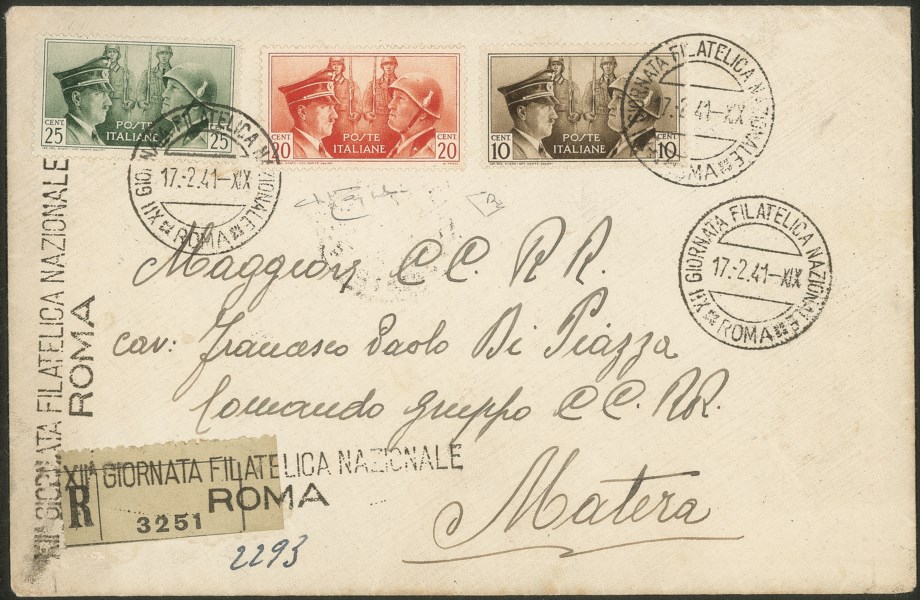 CENT.
25
POSTE
ITALIANE
25
CENT.
20
POSTE
ITALIANE
CENT.
20
CENT.
10
POSTE
ITALIANE
CENT.
10
XII GIORNATA FILATELICA NAZIONALE
17.-2.41-XIX
ROMA
XII GIORNATA FILATELICA NAZIONALE
17.-2.41-XIX
ROMA
XII GIORNATA FILATELICA NAZIONALE
17.-2.41-XIX
ROMA
XIIª GIORNATA FILATELICA NAZIONALE
ROMA
Maggiore CC. RR.
cav: Francesco Paolo Di Piazza
Comando gruppo CC. RR.
Matera
XIIª GIORNATA FILATELICA NAZIONALE
ROMA
R
3251
2293